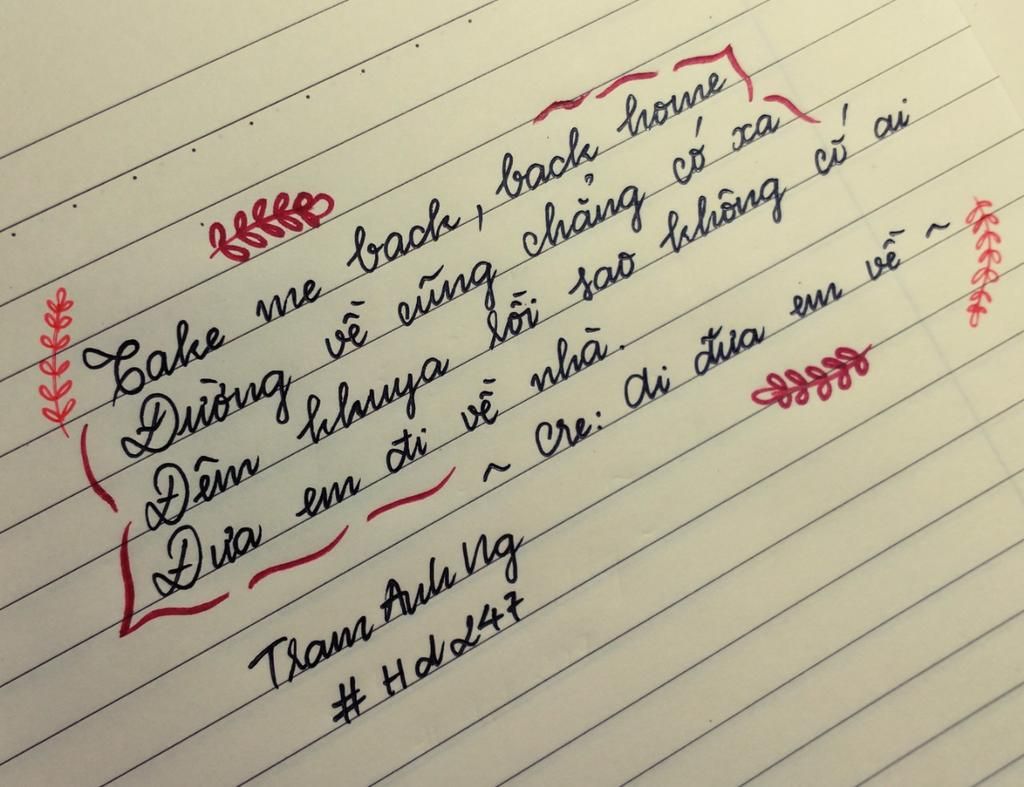 Take me back, back home
Đường về cũng chẳng có xa
Đêm khuya rồi sao không có ai
Đưa em đi về nhà.
~ Cre: Ai đưa em về ~
Tram Anh Ng
# Hd 247